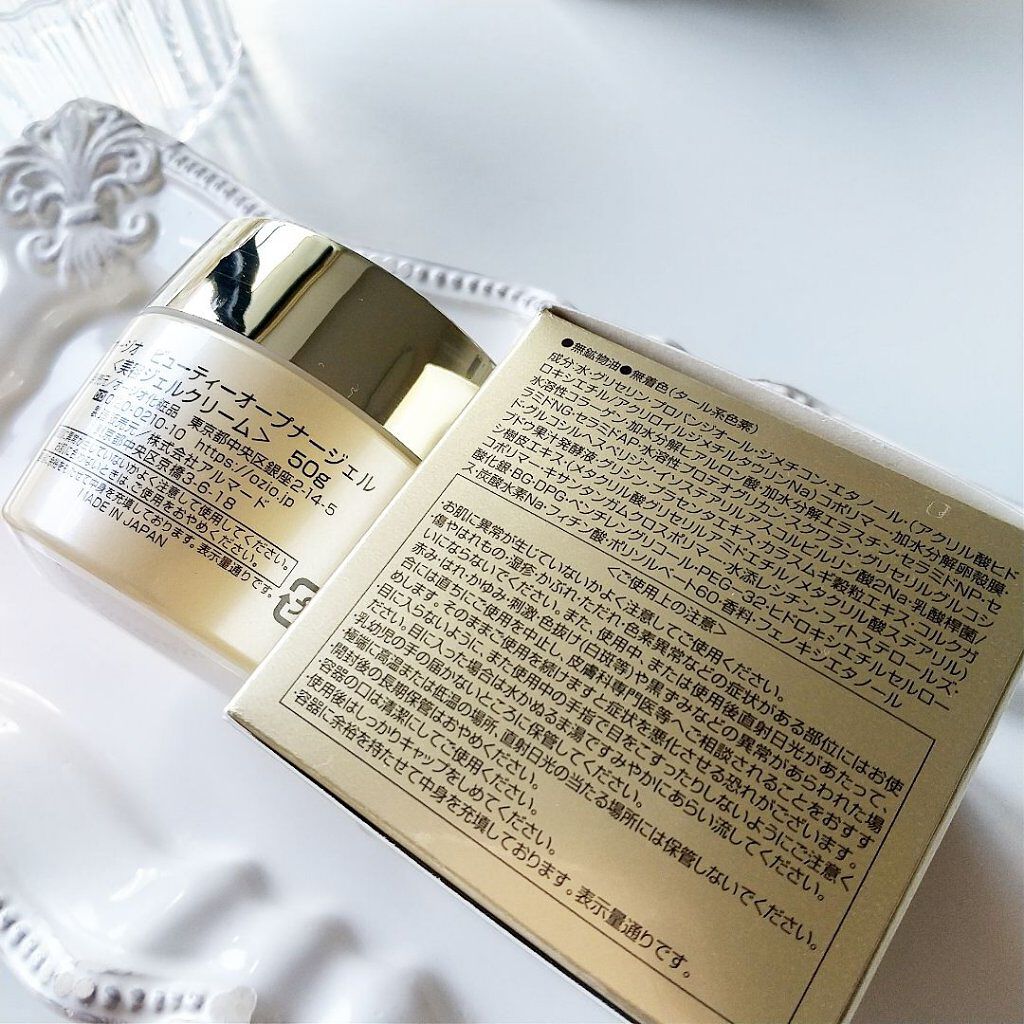 ージオ ビューティーオープナージェル
〈美容ジェルクリーム〉 50g
オージオ化粧品
東京都中央区銀座2-14-5
0-0210-10 https://ozio.jp
株式会社アルマード
東京都中央区京橋3-6-18
異常が生じていないかよく注意して使用してください。
お肌に合わないときは、ご使用をおやめください。
せて中身を充填しております。表示量通りです。
MADE IN JAPAN
●無鉱物油●無着色(タール系色素)
成分:水・グリセリン・プロパンジオール・ジメチコン・エタノール・(アクリル酸ヒド
ロキシエチル/アクリロイルジメチルタウリンNa)コポリマール・加水分解卵殻膜・
水溶性コラーゲン・加水分解ヒアルロン酸・加水分解エラスチン・セラミドNP・セ
ラミドNG・セラミドAP・水溶性プロテオグリカン・スクワラン・グリセリルグルコシ
ド・グルコシルヘスペリジン・イソステアリルアスコルビルリン酸2Na・乳酸桿菌/
ブドウ果汁発酵液・グリシン・ジペンタエキス・カラスムギ穀粒エキス・コルクガ
シ樹皮エキス・(メタクリル酸グリセリルアミドエチル/メタクリル酸ステアリル)
コポリマー・キサンタンガムクロスポリマー・水添レシチン・フィトステロールズ・
酸化銀・BG・DPG・ペンチレングリコール・PEG-32・ヒドロキシエチルセルロー
ス・炭酸水素Na・フィチン酸・ポリソルベート60・香料・フェノキシエタノール
〈ご使用上の注意〉
お肌に異常が生じていないかよく注意してご使用ください。
傷やはれもの、湿疹、かぶれ、ただれ、色素異常などの症状がある部位にはお使
いにならないでください。また、使用中、または使用後直射日光があたって、
赤み・はれ・かゆみ・刺激・色抜け(白斑等)や黒ずみなどの異常があらわれた場
合には直ちにご使用を中止し、皮膚科専門医等へご相談されることをおすす
めします。そのままご使用を続けますと症状を悪化させる恐れがございます。
目に入らないように、また使用中の手指で目をこすったりしないようにご注意く
ださい。目に入った場合は水かぬるま湯ですみやかにあらい流してください。
・乳幼児の手の届かないところに保管してください。
・極端に高温または低温の場所、直射日光の当たる場所には保管しないでください。
・開封後の長期保管はおやめください。
・容器の口は清潔にしてご使用ください。
・使用後はしっかりキャップをしめてください。
・容器に余裕を持たせて中身を充填しております。表示量通りです。